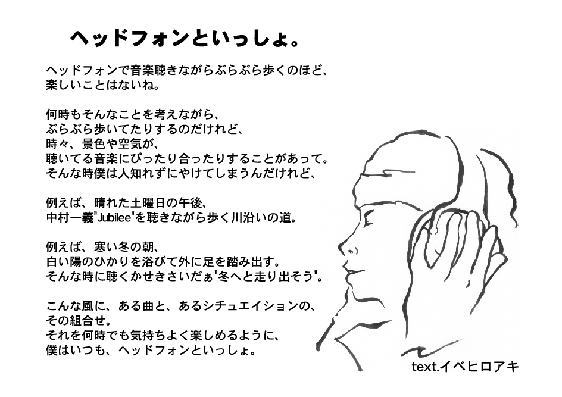 ヘッドフォンといっしょ。
ヘッドフォンで音楽聴きながらぶらぶら歩くのほど、
楽しいことはないね。
何時もそんなことを考えながら、
ぶらぶら歩いてたりするのだけれど、
時々、景色や空気が、
聴いてる音楽にぴったり合ったりすることがあって。
そんな時僕は人知れずにやけてしまうんだけれど、
例えば、晴れた土曜日の午後、
中村一義"Jubilee"を聴きながら歩く川沿いの道。
例えば、寒い冬の朝、
白い陽のひかりを浴びて外に足を踏み出す。
そんな時に聴くかせきさいだぁ"冬へと走り出そう"。
こんな風に、ある曲と、あるシチュエイションの、
その組合せ。
それを何時でも気持ちよく楽しめるように、
僕はいつも、ヘッドフォンといっしょ。
text.イベヒロアキ